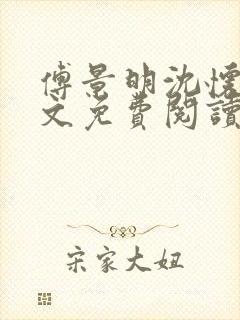 傅景明沈懷
文免費閱讀
宋家大妞